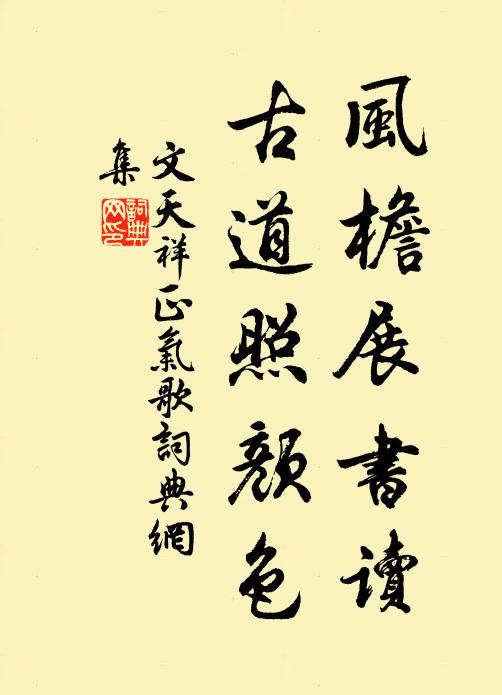 風檐展書讀
古道照顏色
文天祥正氣歌詞典網
集
詞典網印